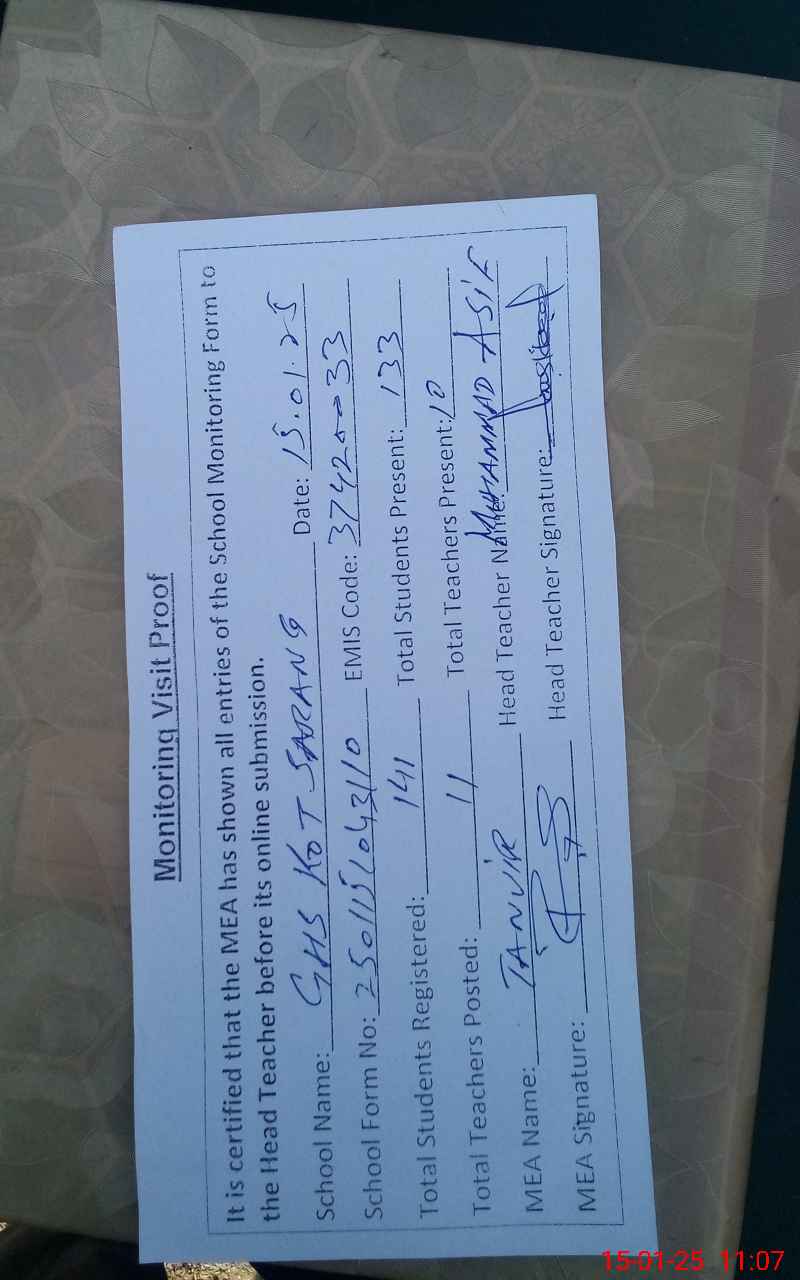 Monitoring Visit Proof
It is certified that the MEA has shown all entries of the School Monitoring Form to
the Head Teacher before its online submission.
School Name: GHS KOT SARANG Date: 15.01.25
School Form No: 2501151043110 EMIS Code: 37420033
Total Students Registered: 141 Total Students Present: 133
Total Teachers Posted: 11 Total Teachers Present: 10
MEA Name: TANVIR Head Teacher Name: MUHAMMAD ASIF
MEA Signature: Head Teacher Signature:
15-01-25 11:07